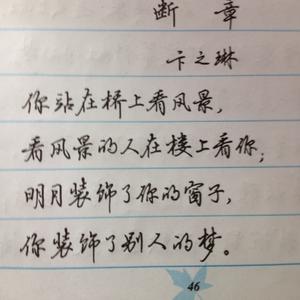 断 章
卞之琳
你站在桥上看风景，
看风景的人在楼上看你；
明月装饰了你的窗子，
你装饰了别人的梦。
46